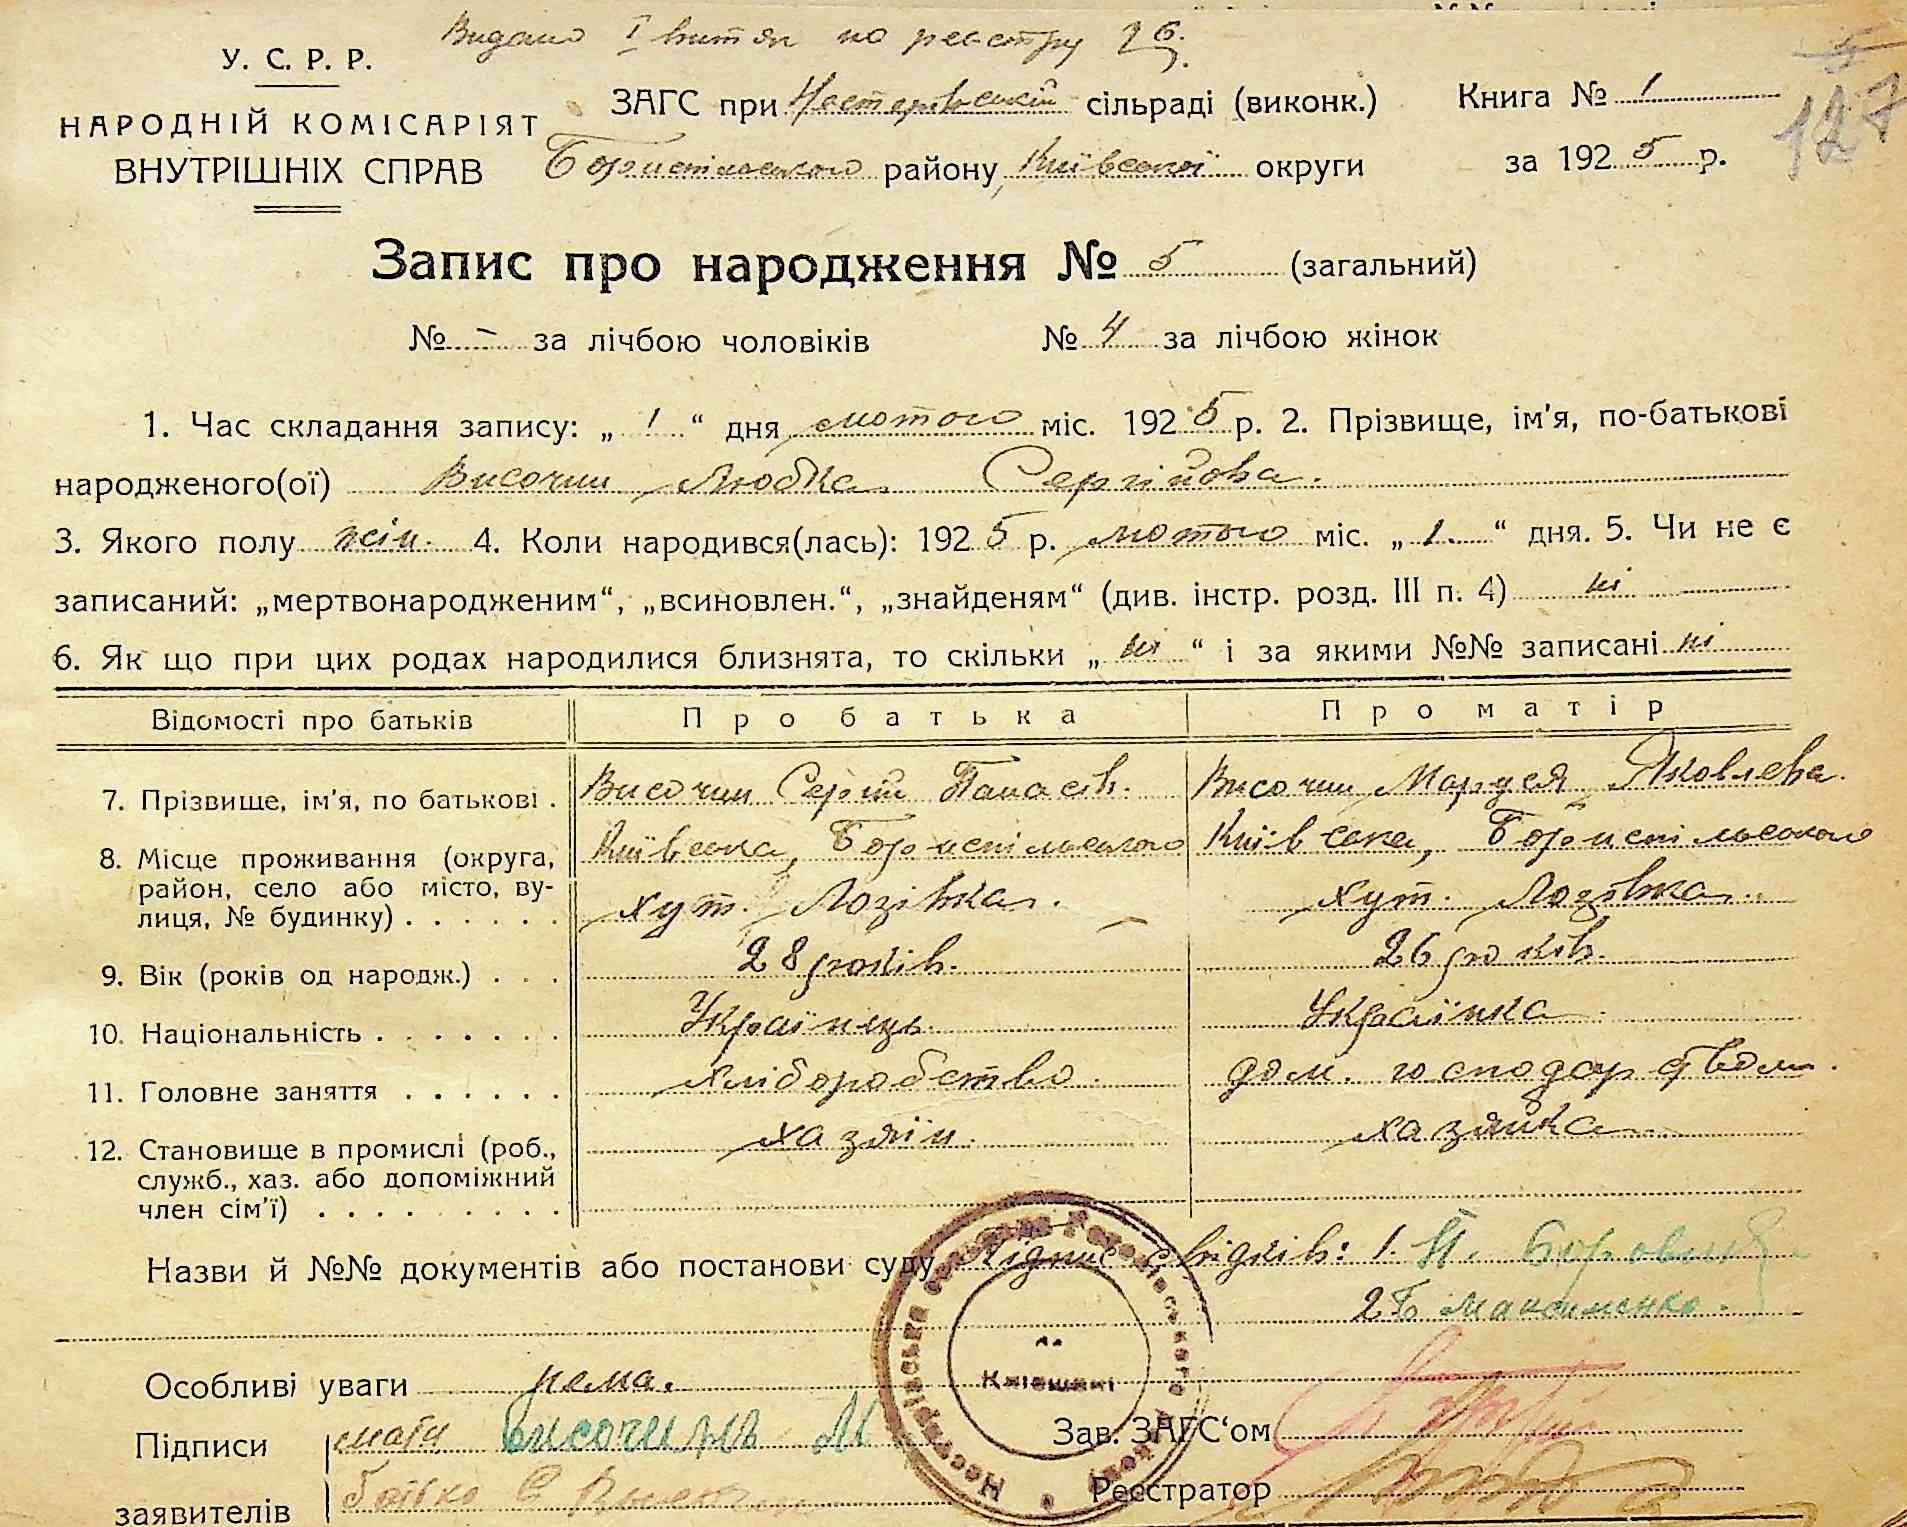 Видано I витяг по реєстру 26.
У. С. Р. Р.
НАРОДНІЙ КОМІСАРІЯТ
ВНУТРІШНІХ СПРАВ
ЗАГС при Нестерівській сільраді (виконк.)
Бориспільського району Київської округи
Книга № 1
за 1925 р.
127
Запис про народження № 5 (загальний)
№ - за лічбою чоловіків № 4 за лічбою жінок
1. Час складання запису: „ 1 “ дня лютого міс. 1925 р. 2. Прізвище, ім'я, по-батькові
народженого(ої) Височин Любка Сергійова.
3. Якого полу жін. 4. Коли народився(лась): 1925 р. лютого міс. „ 1. “ дня. 5. Чи не є
записаний: „мертвонародженим“, „всиновлен.“, „знайденям“ (див. інстр. розд. III п. 4) ні
6. Як що при цих родах народилися близнята, то скільки „ ні “ і за якими №№ записані ні
Відомості про батьків Про батька Про матір
7. Прізвище, ім'я, по батькові . Височин Сергій Панасів. Височин Маруся Яковлева.
8. Місце проживання (округа, район, село або місто, ву-
лиця, № будинку) . . . . . . Київська, Бориспільського хут. Лозівка. Київська, Бориспільського хут. Лозівка.
9. Вік (років од народж.) . . . 28 років. 26 років.
10. Національність . . . . . . . Українець. Українка.
11. Головне заняття . . . . . . хліборобство. дом. господарством.
12. Становище в промислі (роб.,
служб., хаз. або допоміжний
член сім'ї) . . . . . . . . . хазяїн. хазяйка.
Назви й №№ документів або постанови суду Підпис свідків: 1.
2 Б Максименко.
Особливі уваги нема.
Підписи заявителів
мати Височинь М
батько С
Зав. ЗАГС‘ом
Реєстратор
на Київщині